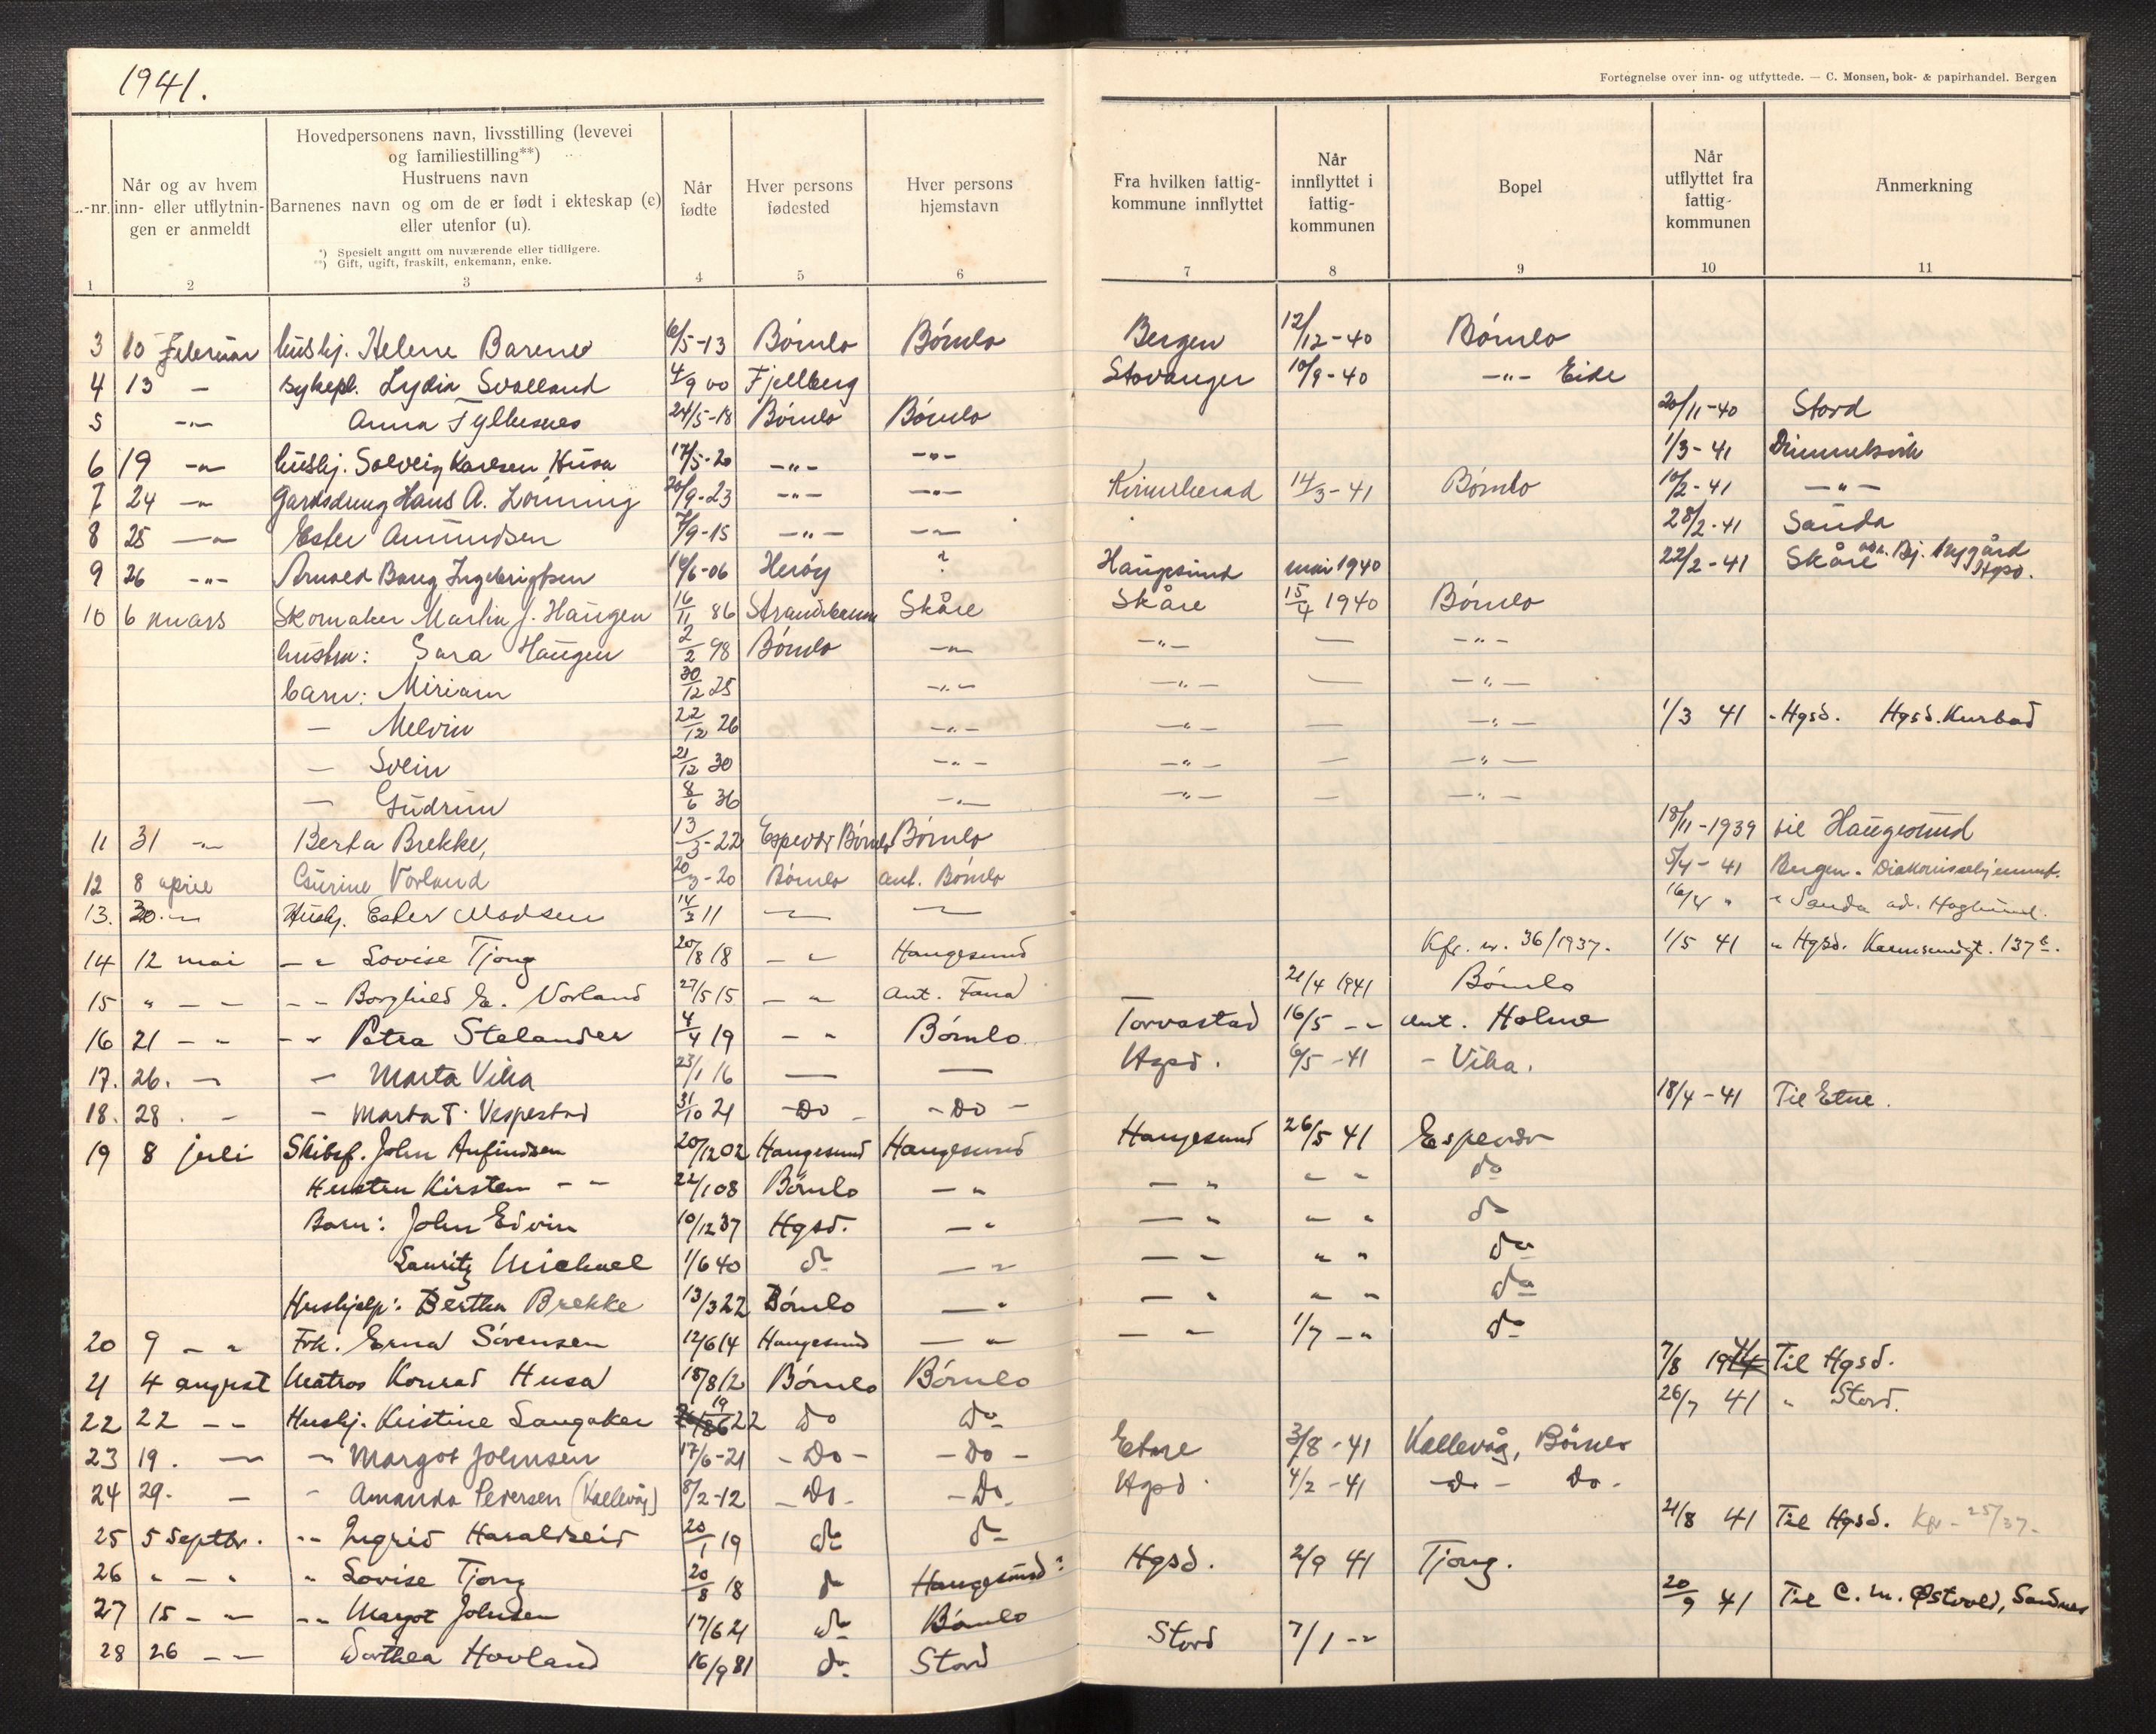 1941.
Fortegnelse over inn- og utfyttede. — C. Monsen, bok- & papirhandel. Bergen
..-nr.
Når og av hvem
inn- eller utflytnin-
gen er anmeldt
Hovedpersonens navn, livsstilling (levevei
og familiestilling**)
Hustruens navn
Barnenes navn og om de er født i ekteskap (e)
eller utenfor (u).
*) Spesielt angitt om nuværende eller tidligere.
**) Gift, ugift, fraskilt, enkemann, enke.
Når
fødte
Hver persons
fødested
Hver persons
hjemstavn
Fra hvilken fattig-
kommune innflyttet
Når
innflyttet i
fattig-
kommunen
Bopel
Når
utflyttet fra
fattig-
kommunen
Anmerkning
1 2 3 4 5 6 7 8 9 10 11
3 10 Februar hushj. Helene Barene 6/5-13 Bömlo Bömlo Bergen 12/12-40 Bömlo
4 13 — sykepl. Lydia Svolland 4/9 00 Fjellberg Stavanger 10/9-40 -"- Eide
5 -"- Anna Fylkesnes 24/5-18 Bömlo Bömlo 20/11-40 Stord
6 19 -"- hushj. Solveig Karlsen Husa 17/5-20 -"- -"- 1/3-41 Dimmelsvik
7 24 -"- Gardsdreng Hans A. Lönning 20/9-23 -"- -"- Kvinnherad 14/3-41 Bömlo 10/2-41 -"-
8 25 -"- Ester Amundsen 7/9-15 -"- -"- 28/2-41 Sauda
9 26 -"- Arnold Bang Ingebrigtsen 16/6-06 Heröy ? Haugesund mai 1940 22/2-41 Skåre adr. Bj. Nygård Hgsd.
10 6 mars Skomaker Martin J. Haugen 16/11 86 Skåre Skåre 15/4 1940 Bömlo
hustru: Sara Haugen 2/2 98 Bömlo -"- -"- — -"-
barn: Miriam 30/12 25 -"- -"- — -"-
— Melvin 22/12 26 -"- -"- — -"- 1/3 41 -Hgsd. Hgsd. Kurbad
— Svein 21/12 30 -"- -"- — -"-
— Gudrun 8/6 36 -"- -"- — -"-
11 31 -"- Berta Brekke, 13/3-22 Espevær Bömlo Bömlo 18/11-1939 til Haugesund
12 8 april Vorland 20/3-20 Bömlo ant. Bömlo 5/4-41 Bergen - Diakonissehjemmet.
13. 30. -"- Hushj. Ester Madsen 14/3 11 -"- -"- 16/4 " " Sauda ad. Haglund.
14 12 mai -"- Lovise Tjong 20/8 18 -"- Haugesund Kfr. nr. 36/1937. 1/5 41 " Hgsd. Karmsundgt. 137
15 " - - -"- Borghild E. Vorland 27/5 15 -"- ant. Fana 21/4 1941 Bömlo
16 21 - - -"- Petra Stelander 4/4 19 -"- Bömlo. Torvastad 16/5 -- ant. Holme
17. 26. — — Marta Vika 23/1 16 — — Hgsd. 6/5-41 - Vika.
18. 28. - - Marta T. Vespestad 31/10 21 -Do- -Do- 18/4-41 Til Etne.
19 8 juli Skibsf. John Anfindsen 20/12 02 Haugesund Haugesund Haugesund 26/5 41 Espevær
Hustru Kirsten -- 22/1 08 Bömlo -"- -"- " " do
Barn: John Edvin 10/12 37 Hgsd. -"- -"- " " do
Lauritz Michael 1/6 40 do -"- -"- " " do
Hushjelp: Bertha Brekke 13/3 22 Bömlo -"- -"- " " do
20 9 - " Frk. Erna Sörensen 12/6 14 Haugesund -"- -"- 1/7 -" do
21 4 august Matros Konrad Husa 18/8 12 Bömlo Bömlo 7/8 1941 Til Hgsd.
22 22 -- Hushj. Kristine Langaker 19/6 22 do do 26/7 41 " Stord.
23 19. — " Margot Johnsen 17/6-21 -Do- -Do- Etne 3/8-41 Kallevåg, Bömlo
24 29. — " Amanda Pedersen (Kallevåg) 8/2-12 -Do- -Do- Hgsd. 4/2-41 -do- Do.
25 5 septbr. -- Ingrid Haraldseid 20/1 19 do do 21/8 41 Til Hgsd. Kfr. 25/37.
26 " - " " Lovise Tjong 20/8 18 do Haugesund? Hgsd. 2/9 41 Tjong.
27 15 - " -- Margot Johnsen 17/6 21 do Bömlo 20/9 41 Til C. M. Østvold, Sandnes
28 26 -- Dorthea Hovland 16/9 81 do Stord Stord 7/1 --